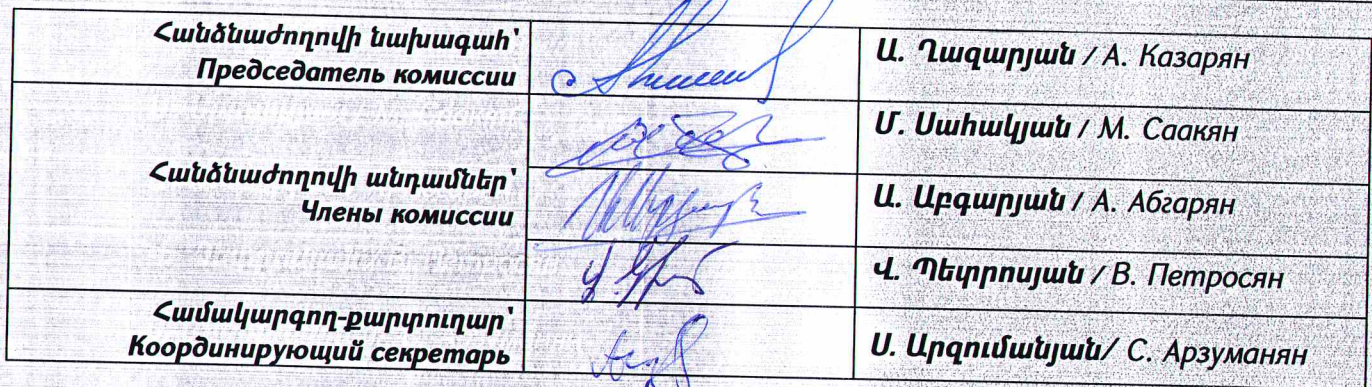 Հանձնաժողովի նախագահ՝
Председатель комиссии
Ա. Ղազարյան / А. Казарян
Մ. Սահակյան / М. Саакян
Հանձնաժողովի անդամներ՝
Члены комиссии
Ա. Աբգարյան / А. Абгарян
Վ. Պետրոսյան / В. Петросян
Համակարգող-քարտուղար՝
Координирующий секретарь
Ս. Արզումանյան/ С. Арзуманян